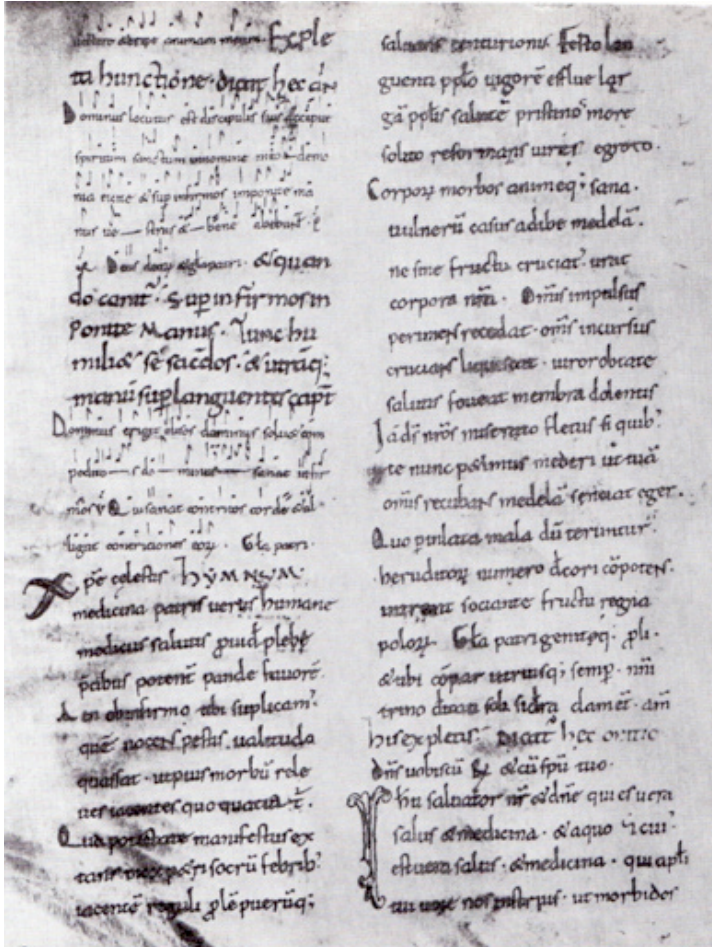 animam meam. Exple
ta hunctione. dicat hec an
Dominus locutus est discipulis suis accipite
spiritum sanctum in nomine meo demo
nia eicite & sup infirmos imponite ma
nus ve stras & bene abebunt.
Deus deorum. & quan
do canit̄. Sup infirmos in
ponite Manus. Tunc hu
mili& se sacdos. & utraq;
manū sup languentis capt̄
Dominus erigit elisos dominus soluit com
peditos do minus sanat infir
mos v̄ Qui sanat contritos corde & al
ligat contritiones eorum. Gla patri.
Xpe celestis HYMNUM.
medicina patris verus humane
medicus salutis p̄uid̄ plebis
p̄cibus potent̄ pande favorē.
En ob infirmos tibi suplicam'.
quē nocens pestis valitudo
quassat. ut pius morbū rele
ves iacentis quo quatit̄.
Qui potestate manifestus ex
tans mox petri socrū febrib'
iacentē reguli p̄lē puerūq;
salvans centurionis Festo lan
guenti pp̄lo vigorē efflue lar
gā pplis salutē pristino more
solito reformans vires egroto.
Corporū morbos animeq; sana.
vulnerū causis adibe medelā.
ne sine fructu cruciat' urat
corpora nr̄a. Om̄is impulsus
perimens recedat. om̄is incursus
crucians liquescat. vigor obtate
salutis foveat membra dolentis
Iā ds̄ nr̄os miserato fletus \ quib'
te nunc petimus mederi ut tuā
om̄is recubans medelā sentiat eger.
Quo p̄ inlata mala dū teruntur.
heruditorū numero decori cōpotens.
intrent sociante fructu regna
polorū. Gla patri genitoq; p̄li.
& tibi cōpar utriusq; semp.
trino clamet. am̄
his expletis. Dicat̄ hec
Dn̄s vobiscū & cū sp̄u tuo.
Ih̄u salvator nr̄ & dn̄e qui es vera
salus & medicina. & a quo & cui'
est vera salus. & medicina. qui apl̄i
tui voce nos instruis. ut morbidos